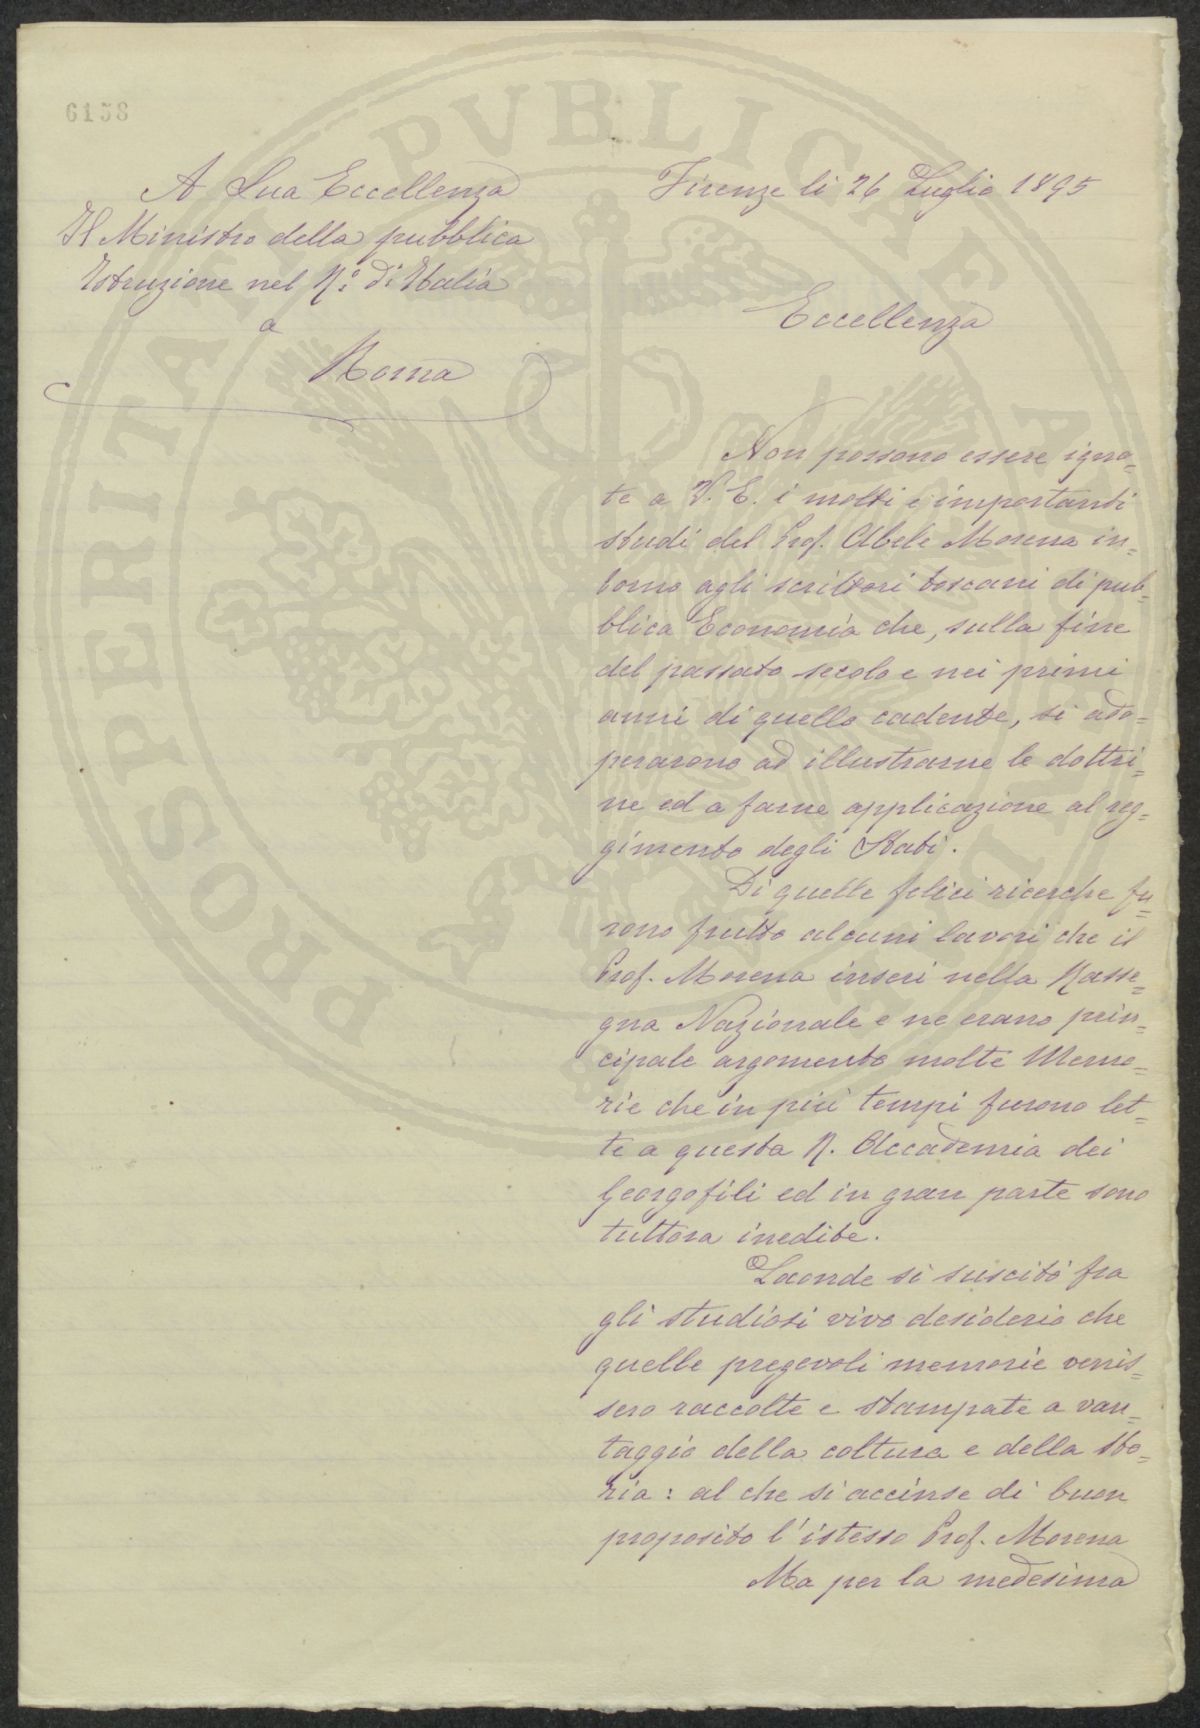 6158
A Sua Eccellenza
Il Ministro della pubblica
Istruzione nel R.º di Italia
a
Roma
Firenze li 26 Luglio 1895
Eccellenza
Non possono essere igno=
te a V. E. i molti e importanti
studi del Prof. Abele Morena in=
torno agli scrittori toscani di pub=
blica Economia che, sulla fine
del passato secolo e nei primi
anni di quello cadente, si ado=
perarono ad illustrarne le dottri=
ne ed a farne applicazione al reg=
gimento degli Stati.
Di quelle felici ricerche fu=
rono frutto alcuni lavori che il
Prof. Morena inserì nella Rasse=
gna Nazionale e ne erano prin=
cipale argomento molte Memo=
rie che in più tempi furono let=
te a questa R. Accademia dei
Georgofili ed in gran parte sono
tuttora inedite.
Laonde si suscitò fra
gli studiosi vivo desiderio che
quelle pregevoli memorie venis=
sero raccolte e stampate a van=
taggio della coltura e della sto=
ria: al che si accinse di buon
proposito l'istesso Prof. Morena
Ma per la medesima
PROSPERITATI PVBLICAE AVGENDAE